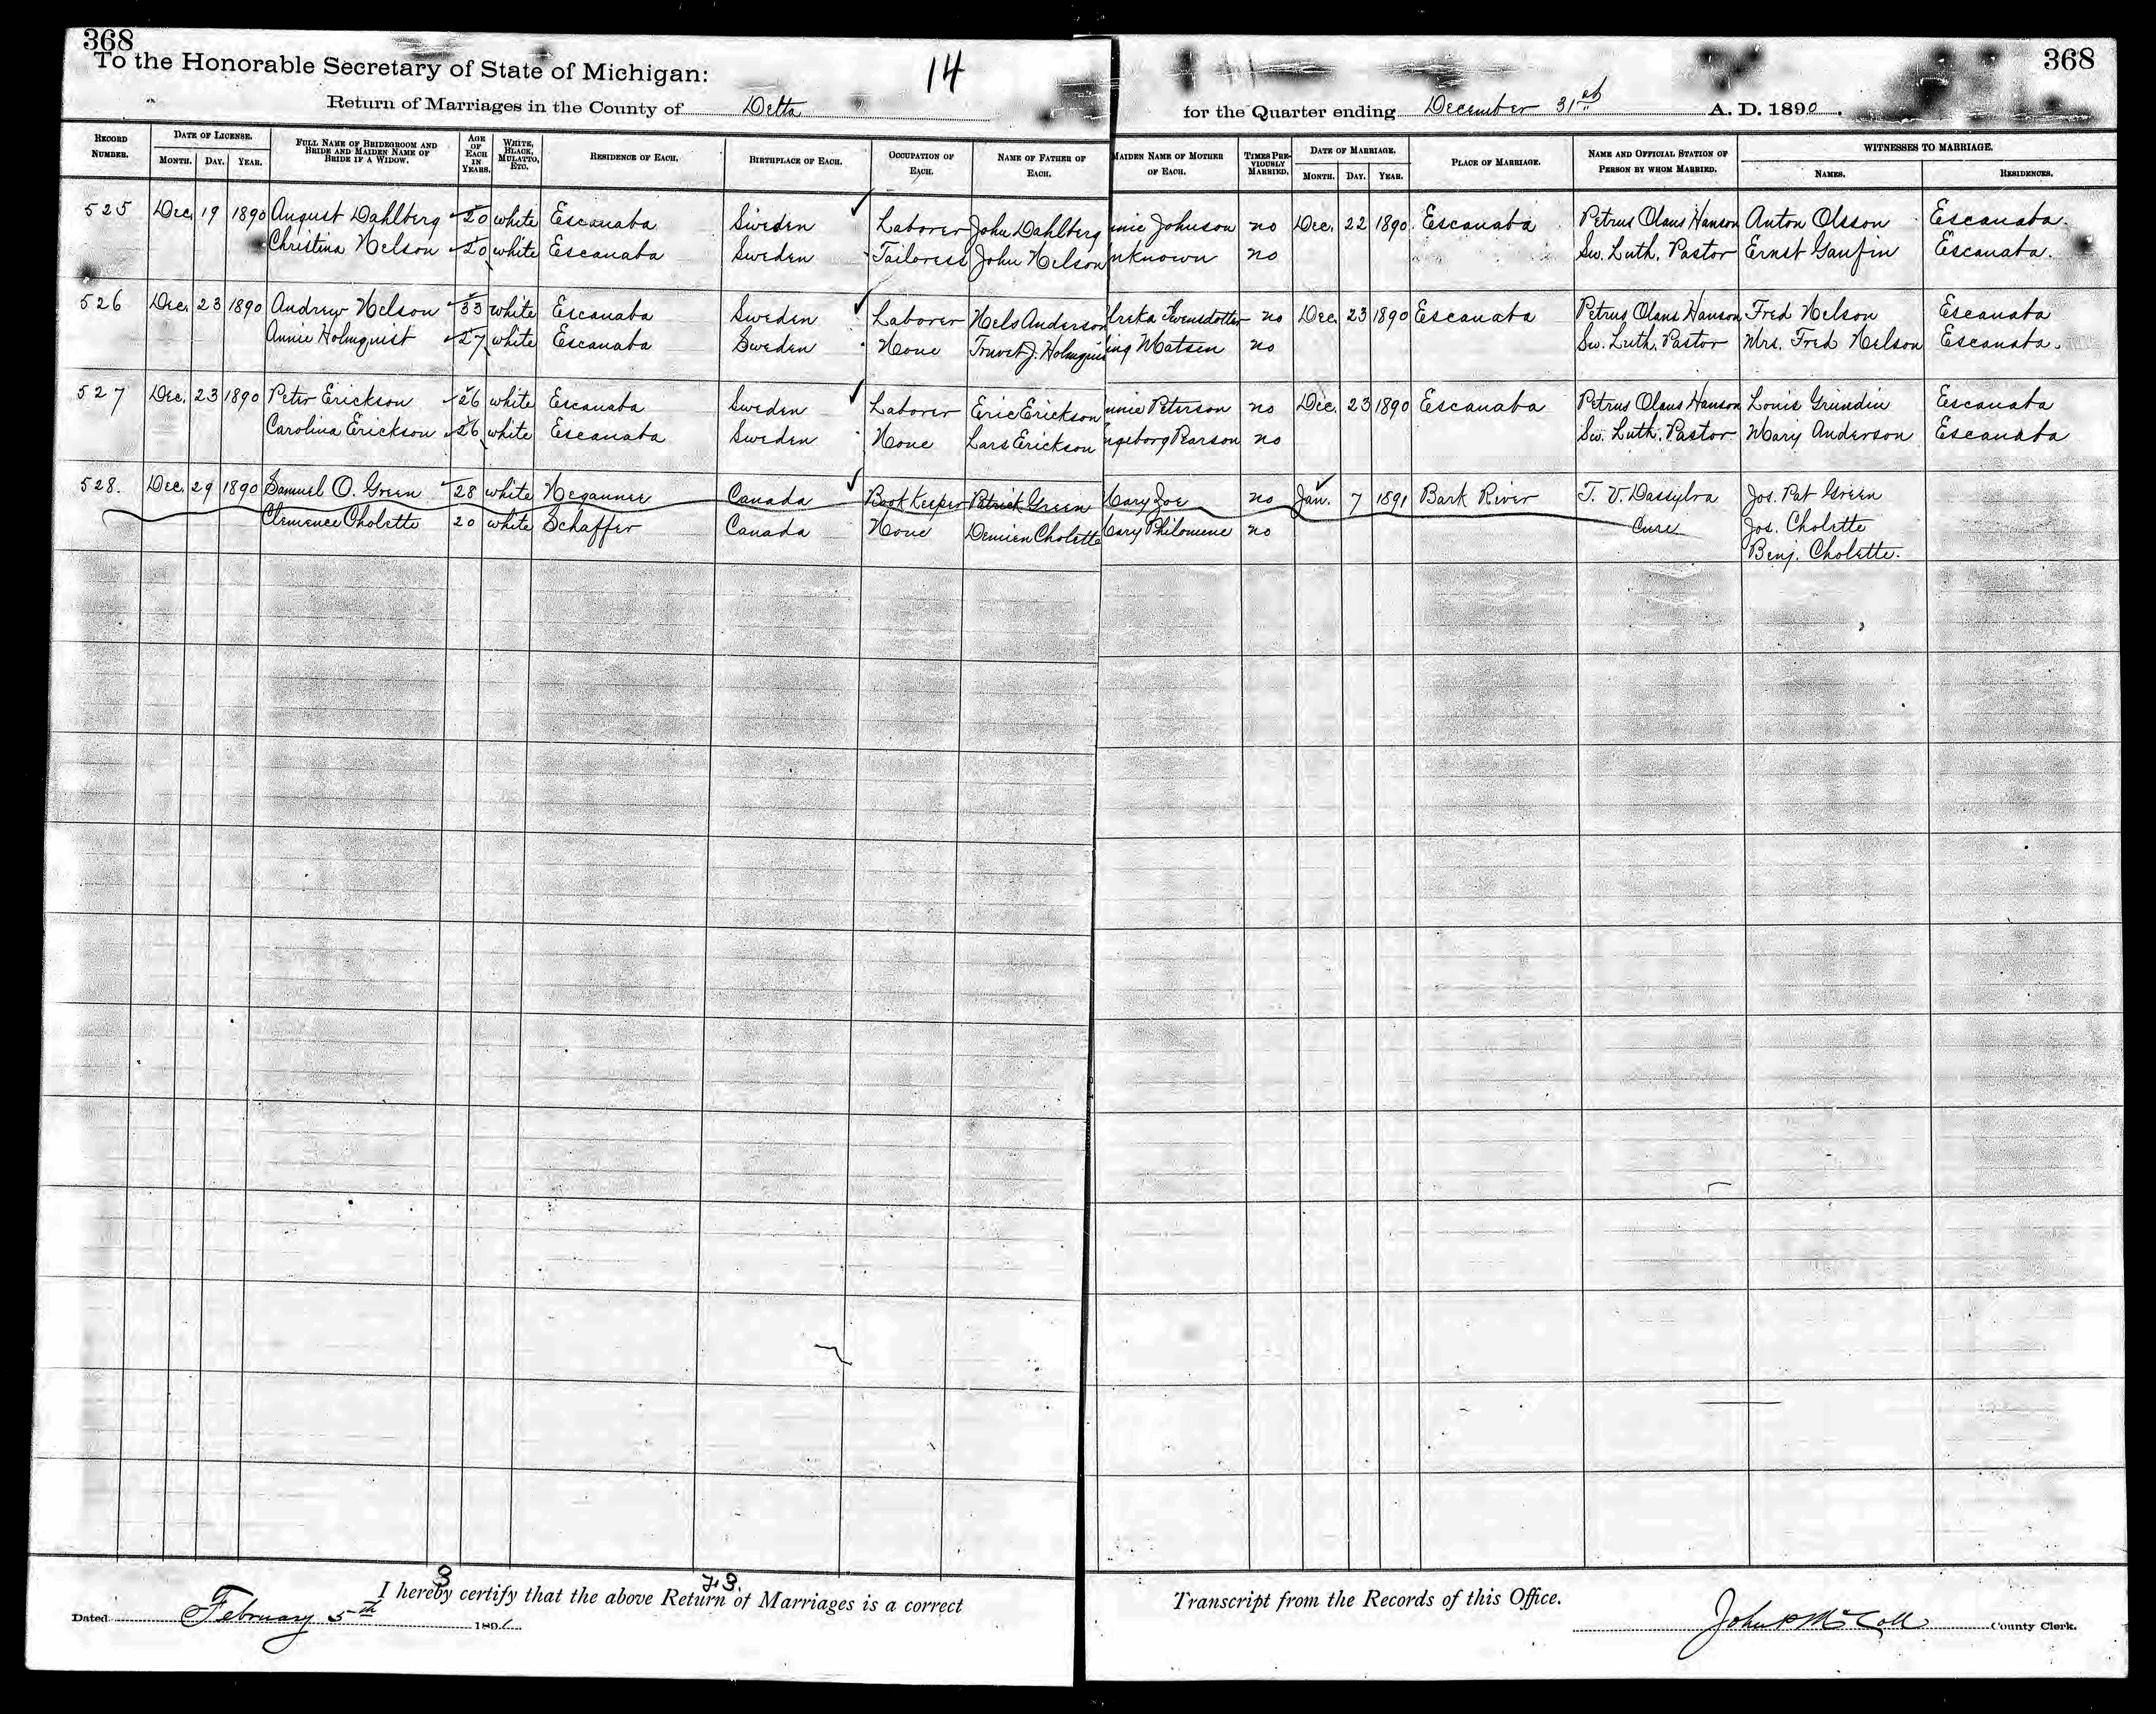 368
To the Honorable Secretary of State of Michigan:
14
368
Return of Marriages in the County of Delta
for the Quarter ending December 31st A. D. 1890.
RECORD NUMBER. DATE OF LICENSE. MONTH. DAY. YEAR. FULL NAME OF BRIDEGROOM AND BRIDE AND MAIDEN NAME OF BRIDE IF A WIDOW. AGE OF EACH IN YEARS. WHITE, BLACK, MULATTO, ETC. RESIDENCE OF EACH. BIRTHPLACE OF EACH. OCCUPATION OF EACH. NAME OF FATHER OF EACH. MAIDEN NAME OF MOTHER OF EACH. TIMES PREVIOUSLY MARRIED. DATE OF MARRIAGE. MONTH. DAY. YEAR. PLACE OF MARRIAGE. NAME AND OFFICIAL STATION OF PERSON BY WHOM MARRIED. WITNESSES TO MARRIAGE. NAMES. RESIDENCES.
525 Dec. 19 1890 August Dahlberg 20 white Escanaba Sweden Laborer John Dahlberg nnie Johnson no Dec. 22 1890 Escanaba Petrus Olaus Hanson Anton Olsson Escanaba.
Christina Nelson 20 white Escanaba Sweden Tailoress John Nelson nknown no Sw. Luth. Pastor Ernst Escanaba.
526 Dec. 23 1890 Andrew Nelson 33 white Escanaba Sweden Laborer Nels Anderson lrika Swensdotter no Dec. 23 1890 Escanaba Petrus Olaus Hanson Fred Nelson Escanaba
Annie Holmquist 27 white Escanaba Sweden None J. Holmquist Matsen no Sw. Luth. Pastor Mrs. Fred Nelson Escanaba.
527 Dec. 23 1890 Peter Erickson 26 white Escanaba Sweden Laborer Eric Erickson nnie Peterson no Dec. 23 1890 Escanaba Petrus Olaus Hanson Louis Grundin Escanaba
Carolina Erickson 26 white Escanaba Sweden None Lars Erickson ngeborg Pearson no Sw. Luth. Pastor Mary Anderson Escanaba
528. Dec. 29 1890 Samuel O. Green 28 white Negaunee Canada Book Keeper Patrick Green Mary Zoe no Jan. 7 1891 Bark River T. V. Dassylva Jos. Pat Green
Clemence Cholette 20 white Schaffer Canada None Demien Cholette Mary Philomene no Cure Jos. Cholette
Benj. Cholette.
3
I hereby certify that the above Return of Marriages is a correct
Transcript from the Records of this Office.
Dated February 5th 1891
John P McColl County Clerk.